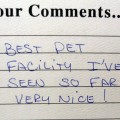 our Comments..
BEST PET
FACILITY I'VE
SEEN SO FAR
VERY NICE!